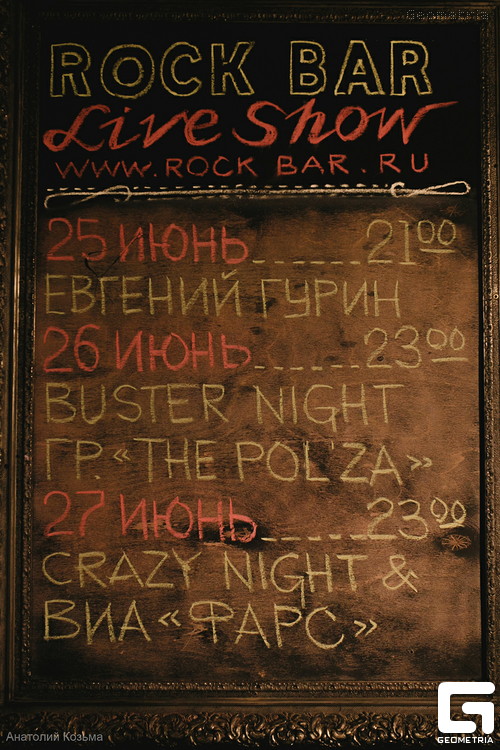 Geometria
ROCK BAR
Live Show
WWW.ROCK BAR.RU
25 ИЮНЬ 21 00
ЕВГЕНИЙ ГУРИН
26 ИЮНЬ 23 00
BUSTER NIGHT
ГР. «THE POL'ZA»
27 ИЮНЬ 23 00
CRAZY NIGHT &
ВИА «ФАРС»
Анатолий Козьма
GEOMETRIA